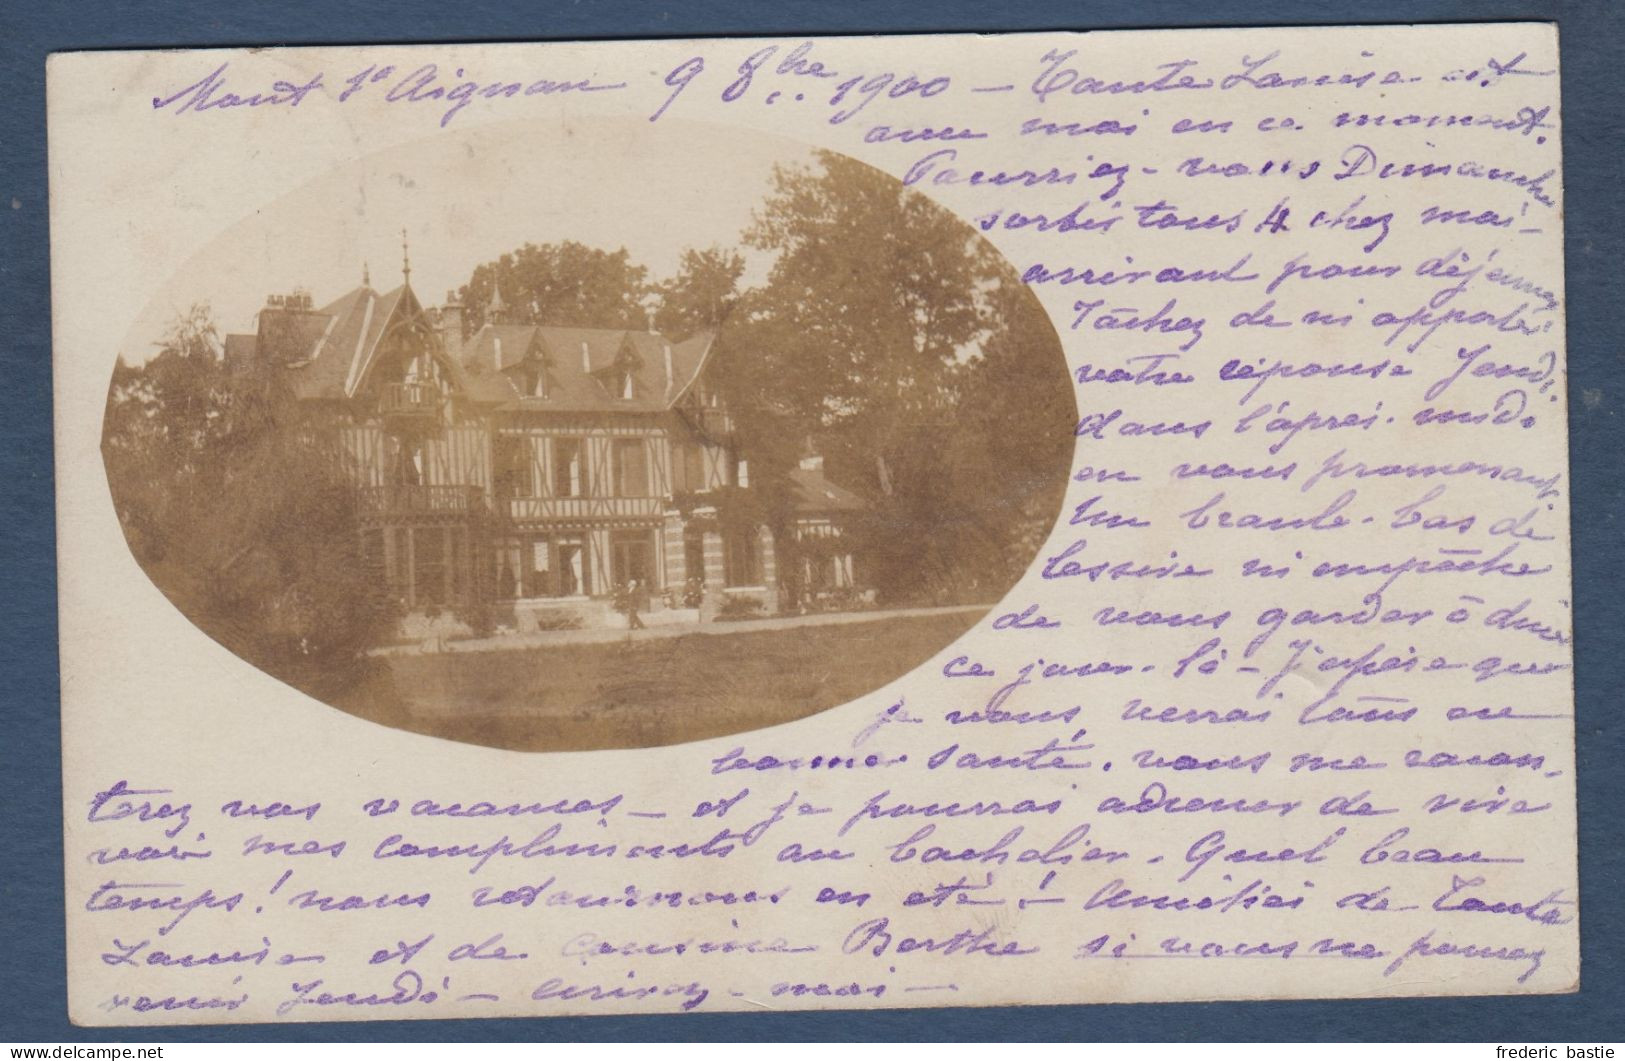 Mont St Aignan 9 8bre 1900 — Tante Louise est
avec moi en ce moment.
Pourriez-vous Dimanche
sortir tous 4 chez moi -
arrivant pour déjeuner
Tâchez de m'apporter
votre réponse Jeudi
dans l'après-midi
en vous promenant
Un branle-bas de
lessive m'empêche
de vous garder à dîner
ce jour-là — J'espère que
je vous verrai tous en
bonne santé. vous me racon-
terez vos vacances — et je pourrai adresser de vive
voix mes compliments au bachelier. Quel beau
temps ! nous retournons en été ! Amitiés de Tante
Louise et de Cousine Berthe si vous ne pouvez
venir Jeudi — écrivez-moi —
frederic bastie
delcampe.net